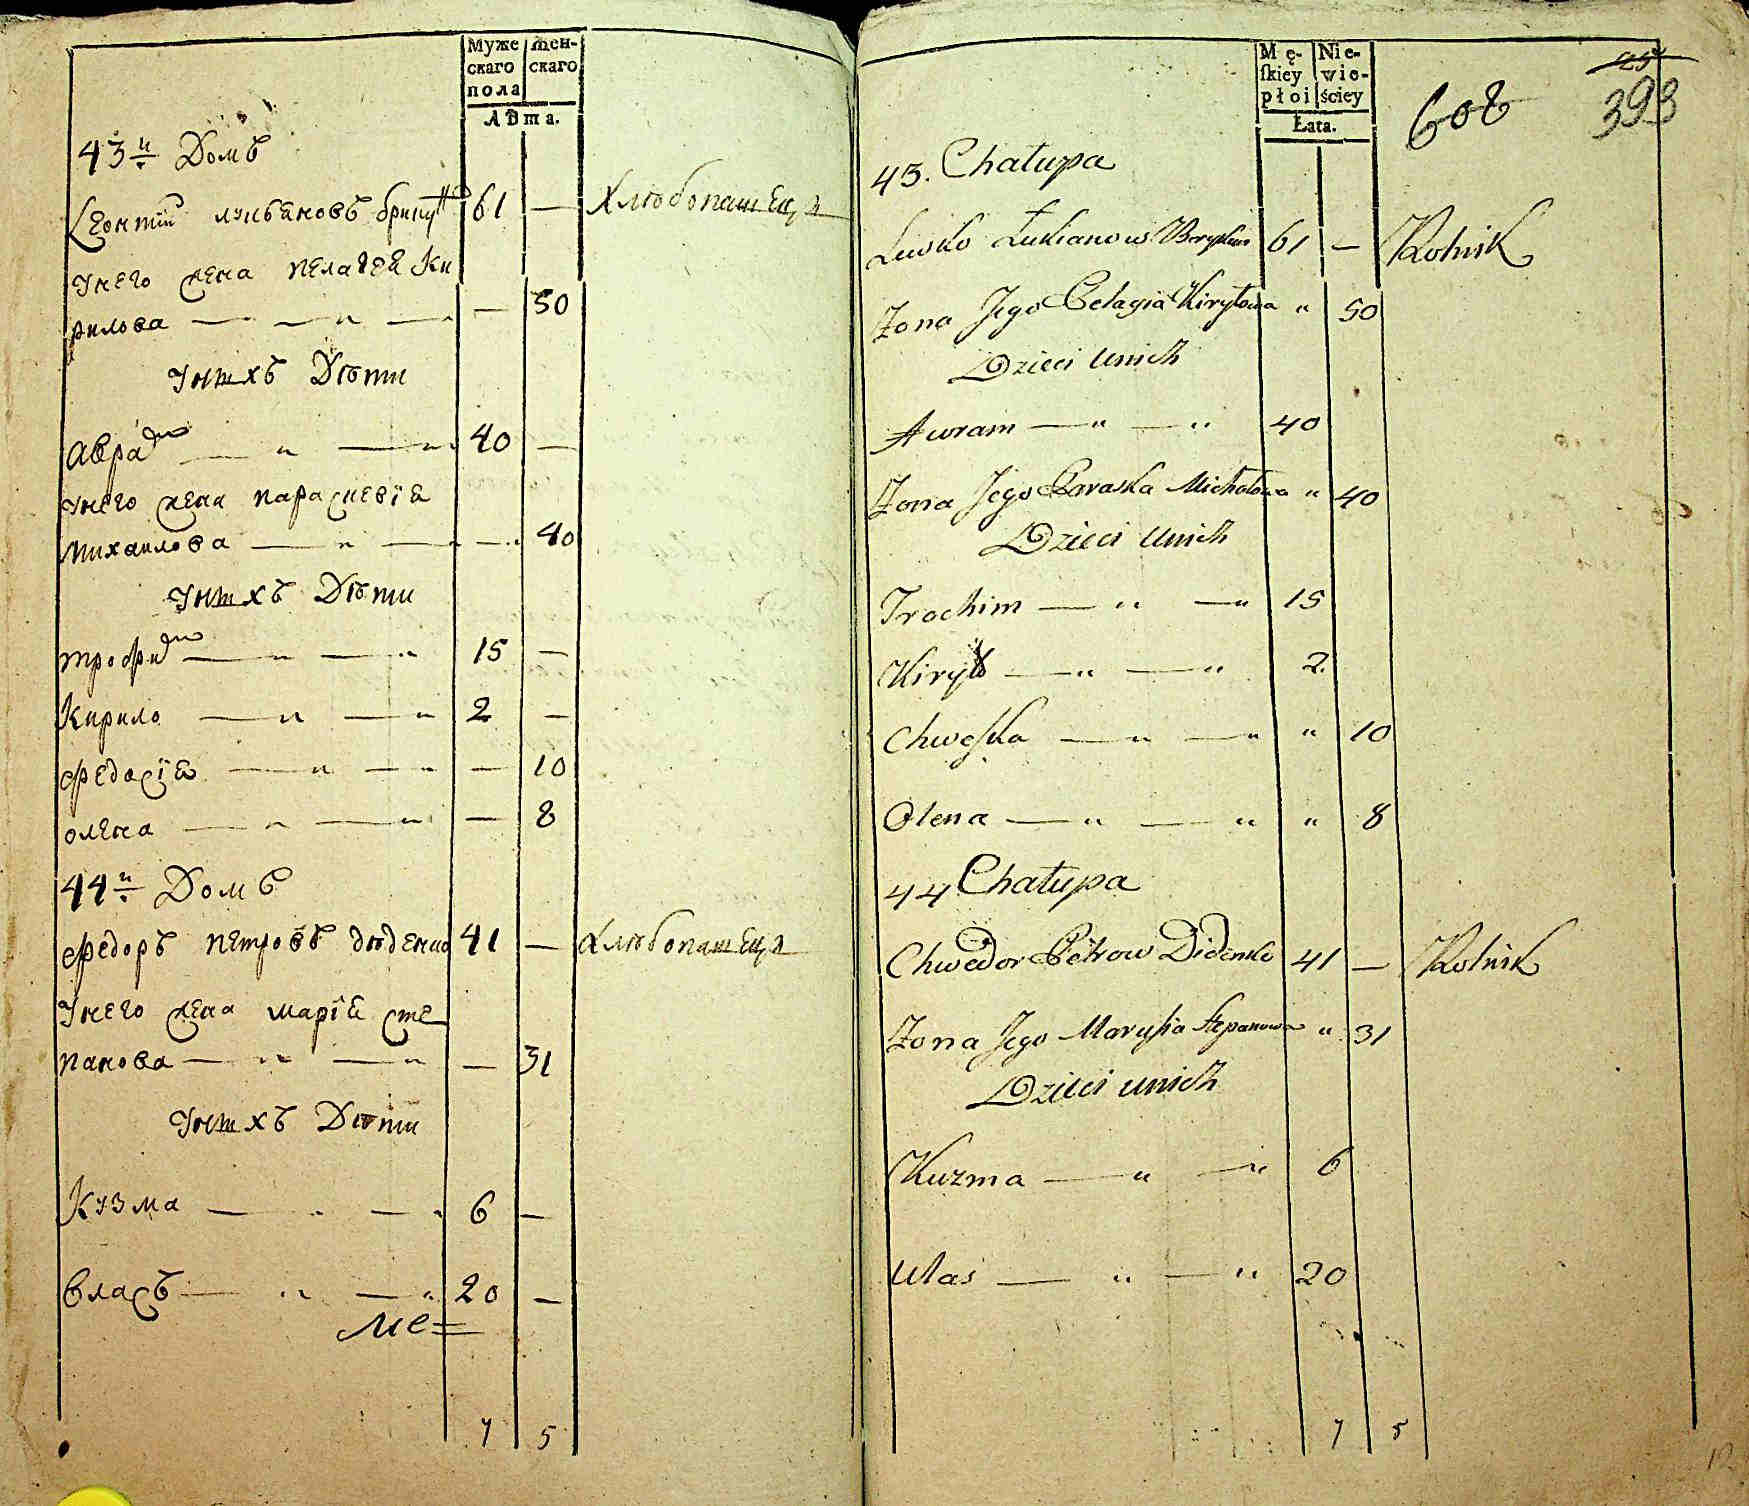 Муже
скаго
пола
жен-
скаго
Лѣта.
43й Домъ
Леонтий лукьяновъ 61 — Хлѣбопашецъ
у него жена пелагея Ки
рилова — „ — — 50
у нихъ Дѣти
аврам — „ — „ 40 —
у него жена парасчевїя
михаилова — „ — „ — 40
у нихъ Дѣти
трофим — „ — „ 15 —
Кирило — „ — „ 2 —
федосїя — „ — „ — 10
олена — „ — „ — 8
44й Домъ
федоръ петровъ дѣденко 41 — Хлѣбопашецъ
у него жена марїя сте
панова — „ — „ — 31
у нихъ Дѣти
Кузма — „ — „ 6 —
власъ — „ — „ 20 —
7 5
Mę-
skiey
płoi
Nie-
wie-
ściey
Łata.
25
608
393
43. Chałupa
Łukianow 61 — Rolnik
Zona Jego Pelagia Kiryłowa „ 50
Dzieci unich
Awram — „ — „ 40
Zona Jego Paraska Michałowa „ 40
Dzieci unich
Trochim — „ — „ 15
Kiryło — „ — „ 2
Chweska — „ — „ „ 10
Olena — „ — „ „ 8
44 Chałupa
Chwedor Petrow Didenko 41 — Rolnik
Zona Jego Marysia Stepanowa „ 31
Dzieci unich
Kuzma — „ — „ 6
Ulas — „ — „ 20
7 5